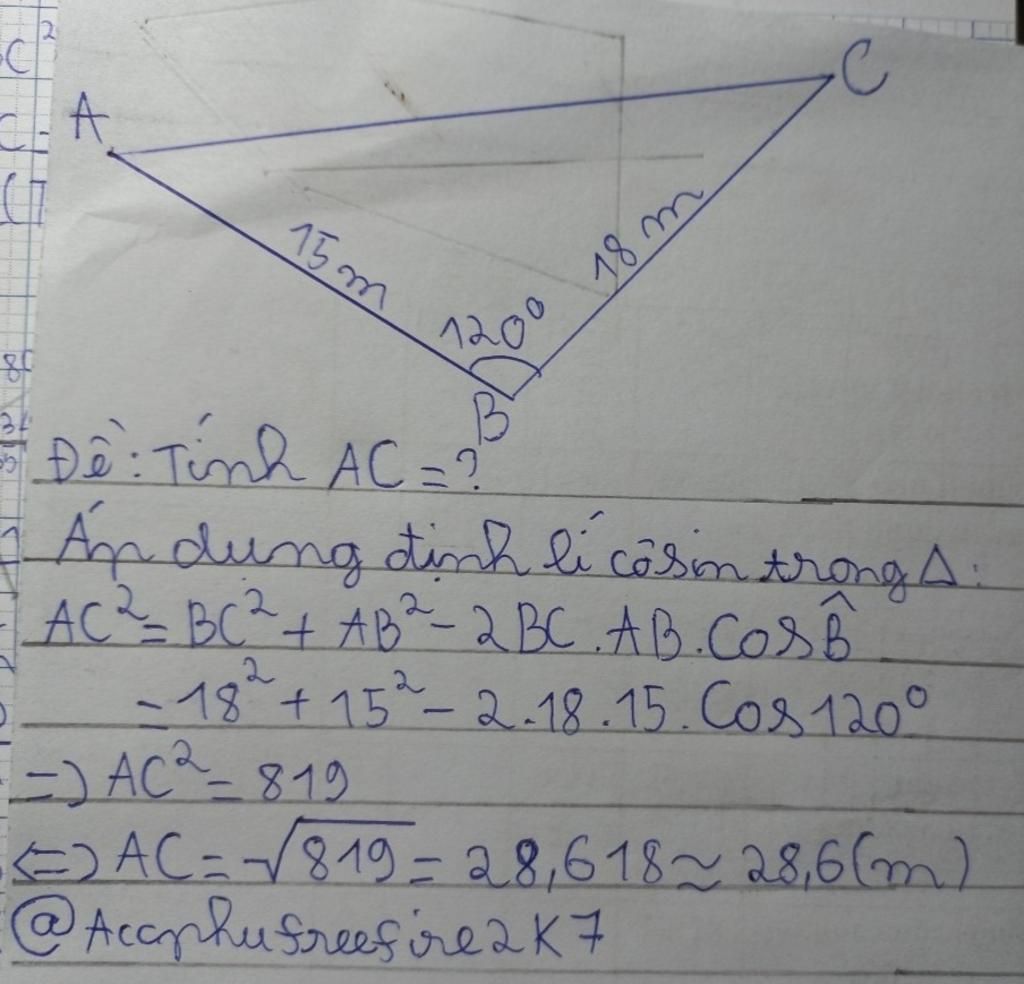 C²
C-
A
C
15 m
18 m
120°
B
Đề: Tính AC = ?
Áp dụng định lí côsin trong Δ:
AC² = BC² + AB² - 2BC . AB . Cos B̂
= 18² + 15² - 2 . 18 . 15 . Cos 120°
=) AC² = 819
<=> AC = √819 = 28,618 ≈ 28,6 (m)
@Accphufreefire2K7